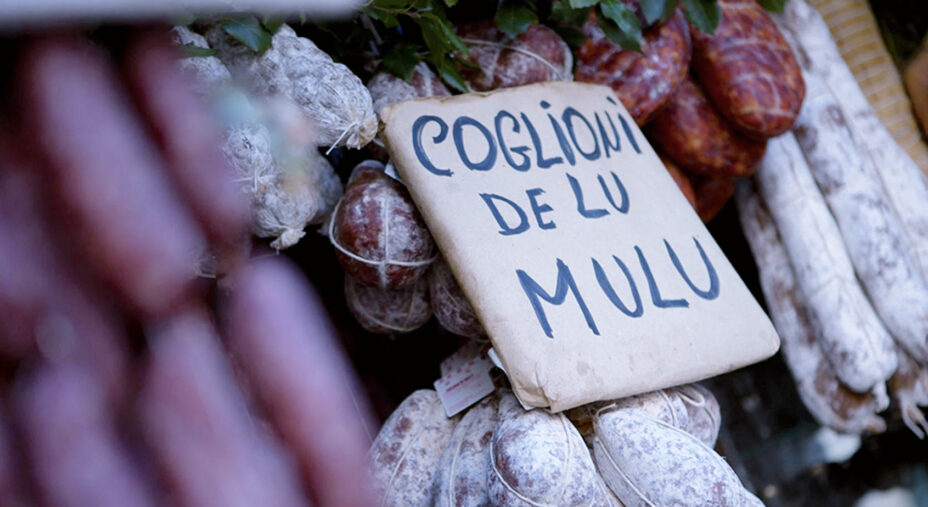 COGLIONI
DE LU
MULU